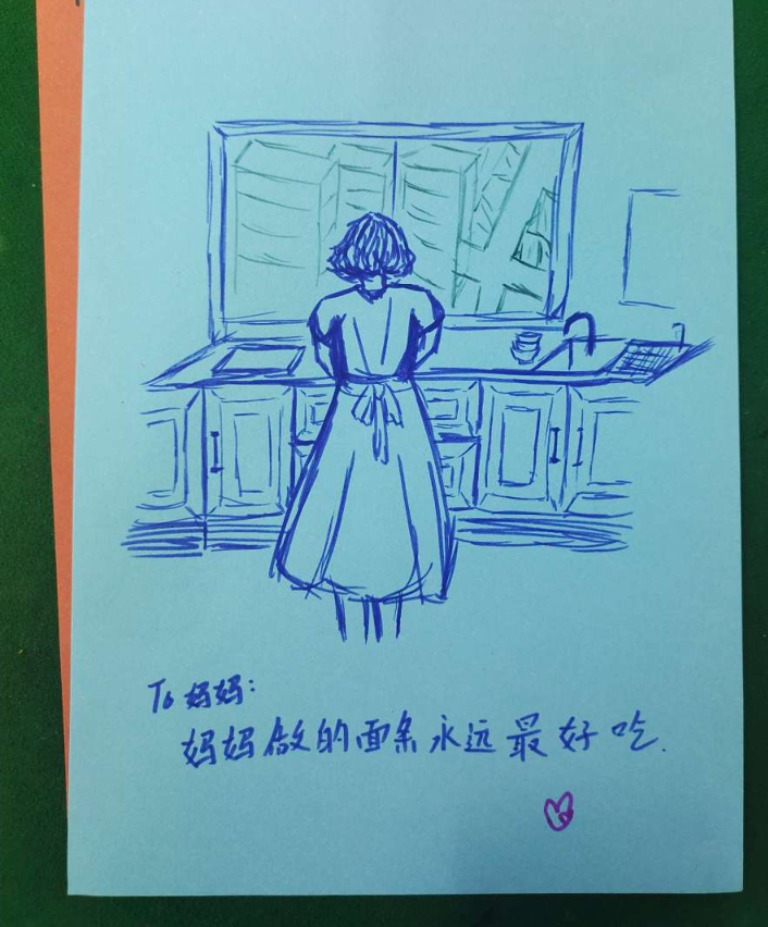 To 妈妈:
妈妈做的面条永远最好吃.